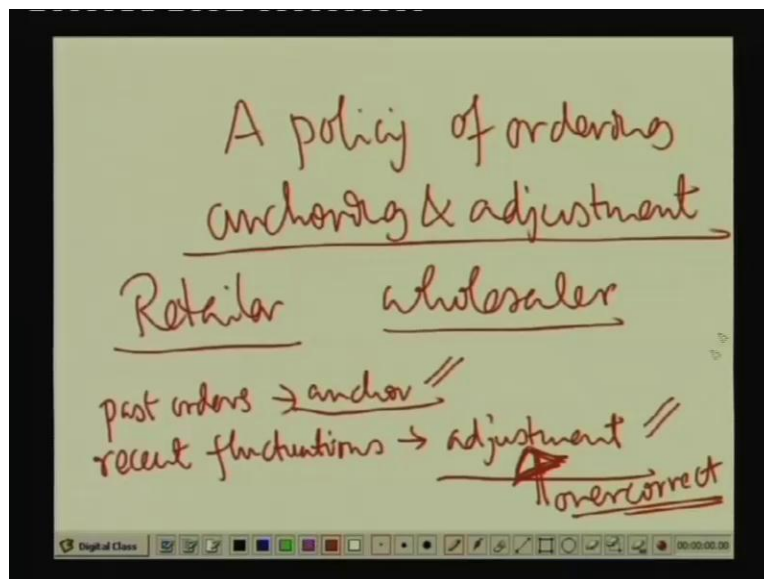 A policy of ordering
anchoring & adjustment
Retailer wholesaler
past orders → anchor //
recent fluctuations → adjustment //
overcorrect
Digital Class 00:00:00.00